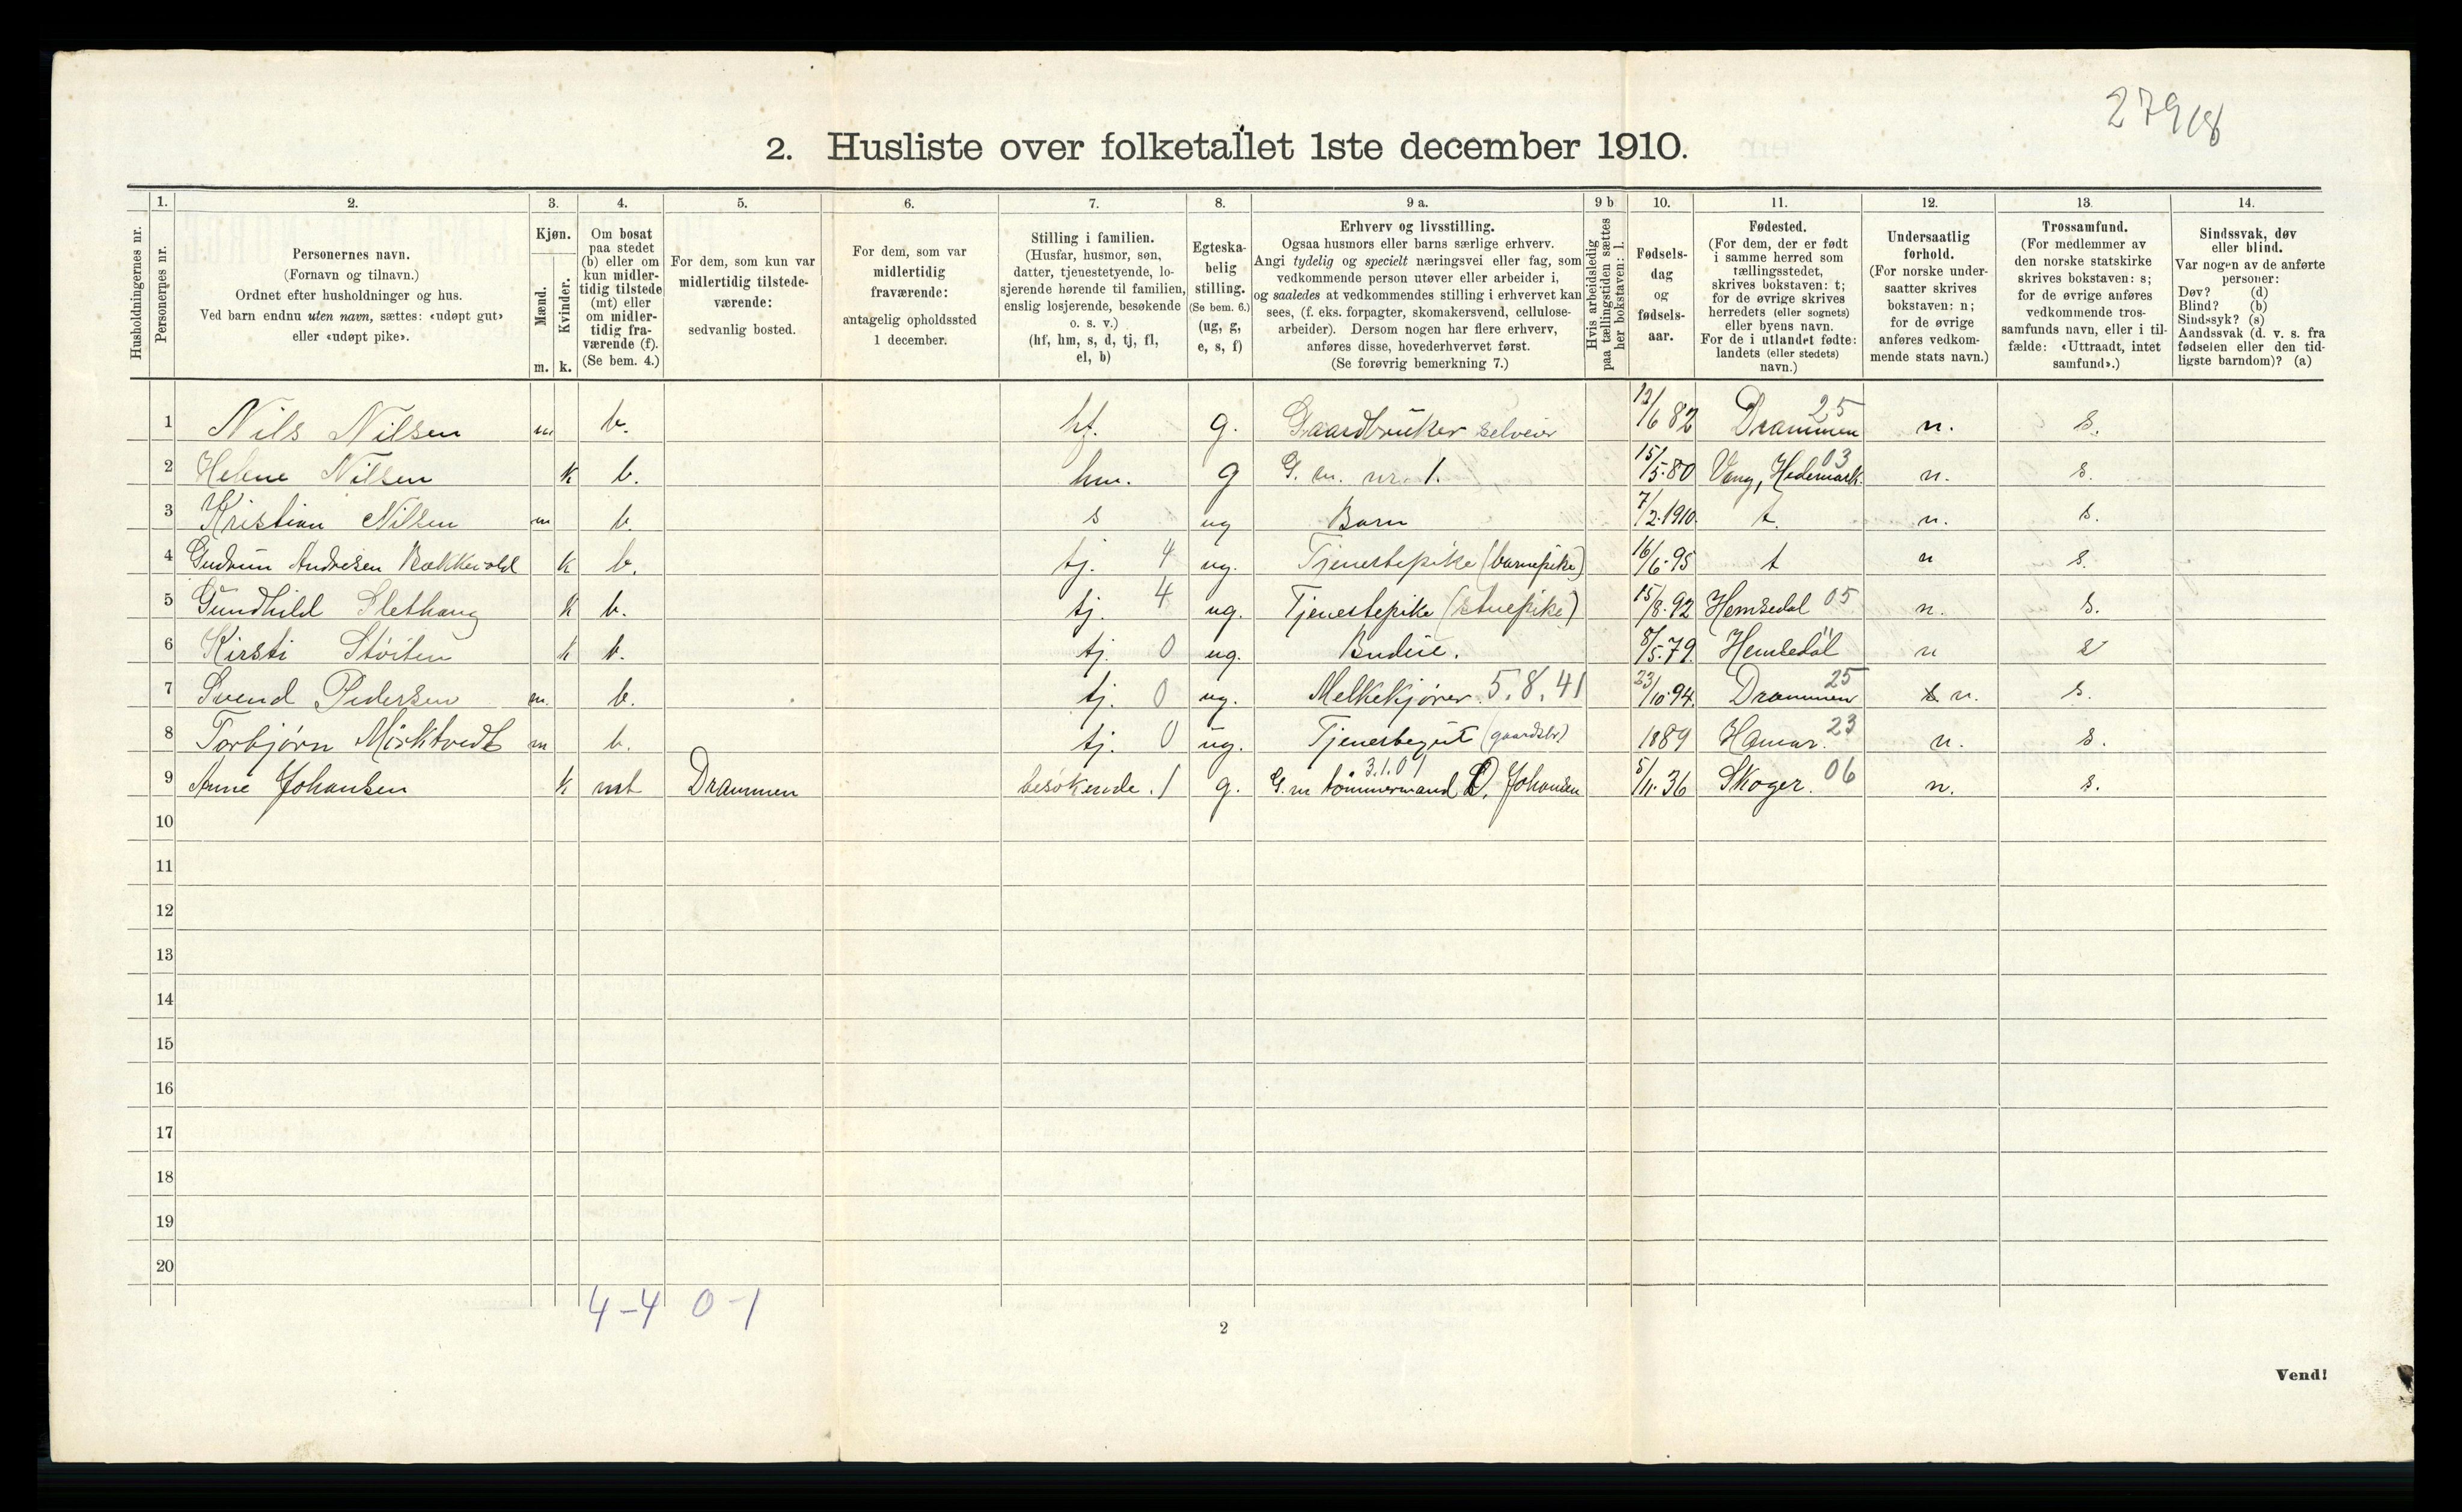 279/8
2. Husliste over folketallet 1ste december 1910.
Husholdningernes nr.
1. Personernes nr.
2. Personernes navn.
(Fornavn og tilnavn.)
Ordnet efter husholdninger og hus.
Ved barn endnu uten navn, sættes: «udøpt gut»
eller «udøpt pike».
3. Kjøn.
Mænd. m.
Kvinder. k.
4. Om bosat
paa stedet
(b) eller om
kun midler-
tidig tilstede
(mt) eller
om midler-
tidig fra-
værende (f).
(Se bem. 4.)
5. For dem, som kun var
midlertidig tilstede-
værende:
sedvanlig bosted.
6. For dem, som var
midlertidig
fraværende:
antagelig opholdssted
1 december.
7. Stilling i familien.
(Husfar, husmor, søn,
datter, tjenestetyende, lo-
sjerende hørende til familien,
enslig losjerende, besøkende
o. s. v.)
(hf, hm, s, d, tj, fl,
el, b)
8. Egteska-
belig
stilling.
(Se bem. 6.)
(ug, g,
e, s, f)
9 a. Erhverv og livsstilling.
Ogsaa husmors eller barns særlige erhverv.
Angi tydelig og specielt næringsvei eller fag, som
vedkommende person utøver eller arbeider i,
og saaledes at vedkommendes stilling i erhvervet kan
sees, (f. eks. forpagter, skomakersvend, cellulose-
arbeider). Dersom nogen har flere erhverv,
anføres disse, hovederhvervet først.
(Se forøvrig bemerkning 7.)
9 b Hvis arbeidsledig
paa tællingstiden sættes
her bokstaven: l.
10. Fødsels-
dag
og
fødsels-
aar.
11. Fødested.
(For dem, der er født
i samme herred som
tællingsstedet,
skrives bokstaven: t;
for de øvrige skrives
herredets (eller sognets)
eller byens navn.
For de i utlandet fødte:
landets (eller stedets)
navn.)
12. Undersaatlig
forhold.
(For norske under-
saatter skrives
bokstaven: n;
for de øvrige
anføres vedkom-
mende stats navn.)
13. Trossamfund.
(For medlemmer av
den norske statskirke
skrives bokstaven: s;
for de øvrige anføres
vedkommende tros-
samfunds navn, eller i til-
fælde: «Uttraadt, intet
samfund».)
14. Sindssvak, døv
eller blind.
Var nogen av de anførte
personer:
Døv? (d)
Blind? (b)
Sindssyk? (s)
Aandssvak (d. v. s. fra
fødselen eller den tid-
ligste barndom)? (a)
1 Nils Nilsen m b. hf. g. Gaardbruker selveier 12/6 82 Drammen 25 n. s.
2 Helene Nilsen k b. hm. g G. m. nr. 1. 15/5.80 Vang, Hedemark. 03 n. s.
3 Kristian Nilsen m b. s ug Barn 7/2.1910. t. n. s.
4 Gudrun Andresen Bakkevold k b. tj. 4 ug. Tjenestepike (barnepike) 16/6.95 t n s.
5 Gundhild Slethaug k b. tj. 4 ug. Tjenestepike (stuepike) 15/8.92 Hemsedal 05 n. s.
6 Kirsti Støiten k b. tj. 0 ug. Budeie. 8/5.79. Hemsedal " n s
7 Svend Pedersen m. b. tj. 0 ug. Melkekjører. 5.8.41 23/10.94. Drammen 25 n. s.
8 Torbjørn Mørktvedt m b. tj. 0 ug. Tjenestegut (gaardsbr) 1889 Hamar. 23 n. s.
9 Anne Johansen k mt Drammen besøkende. 1 g. 3.1.09 G. m tømmermand O. Johansen 5/11.36 Skoger. 06 n. s.
10
11
12
13
14
15
16
17
18
19
20
4-4 0-1
2
Vend!